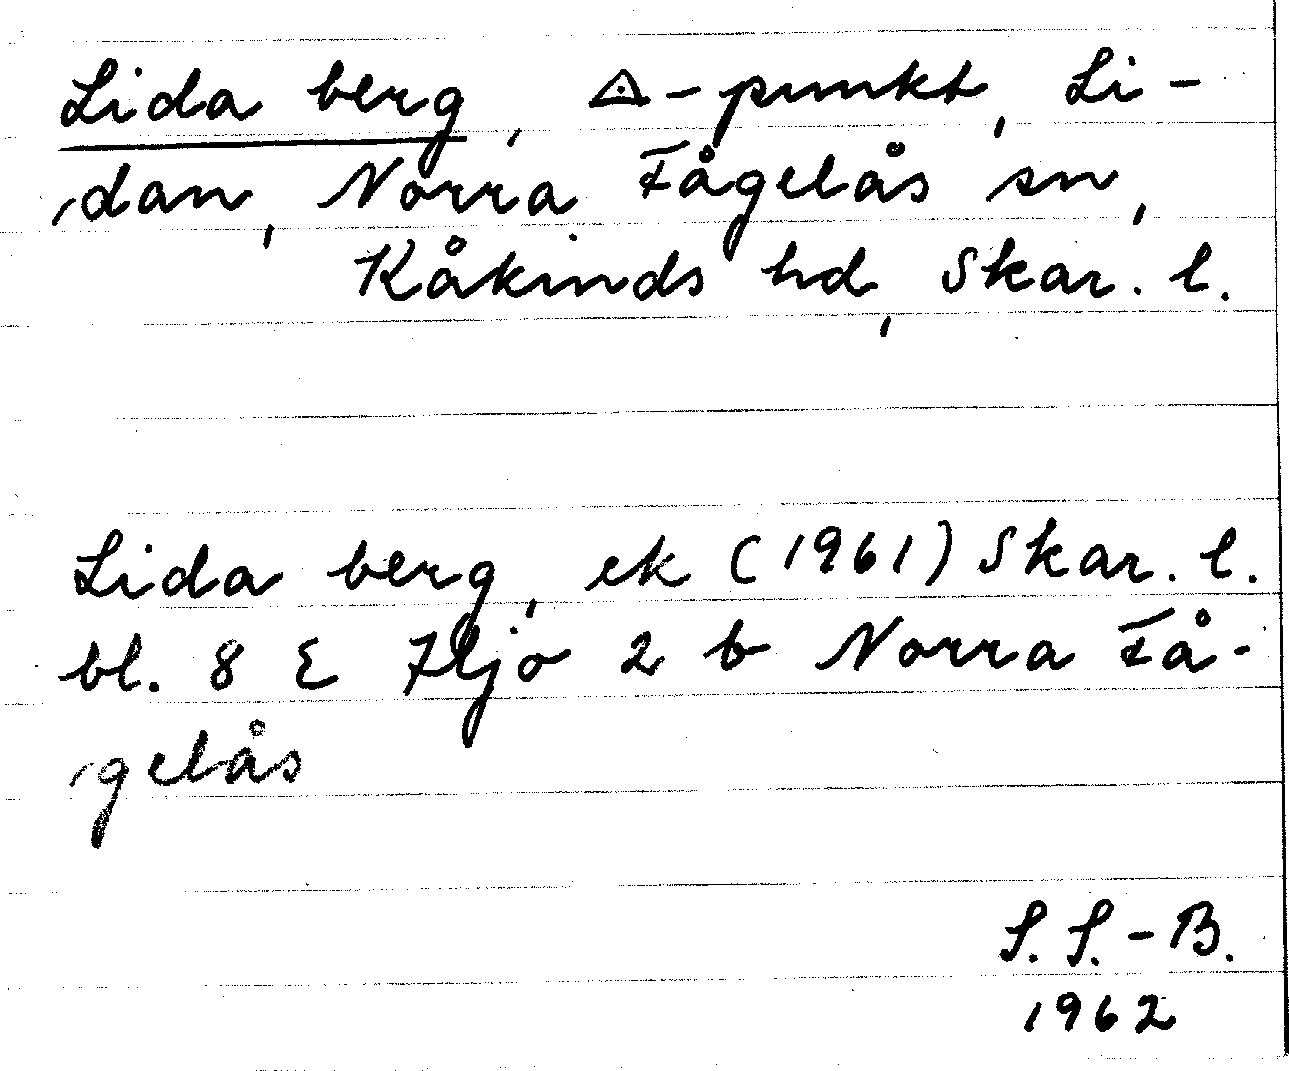 Lida berg, ◬-punkt, Li-
dan, Norra Fågelås sn,
Kåkinds hd, Skar. l.
Lida berg, ek (1961) Skar. l.
bl. 8 E Hjo 2 b Norra Få-
gelås
S. S.-B.
1962